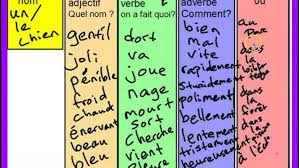 nom
un/
le
chien
adjectif
Quel nom ?
gentil
joli
pénible
froid
chaud
énervant
beau
bleu
verbe
on a fait quoi?
dort
va
joue
nage
mourt
sort
cherche
vient
adverbe
Comment?
bien
mal
vite
rapidement
stupidement
poliment
bellement
lentement
tristement
heureusement
où
au
Parc
dans
la
dans
la